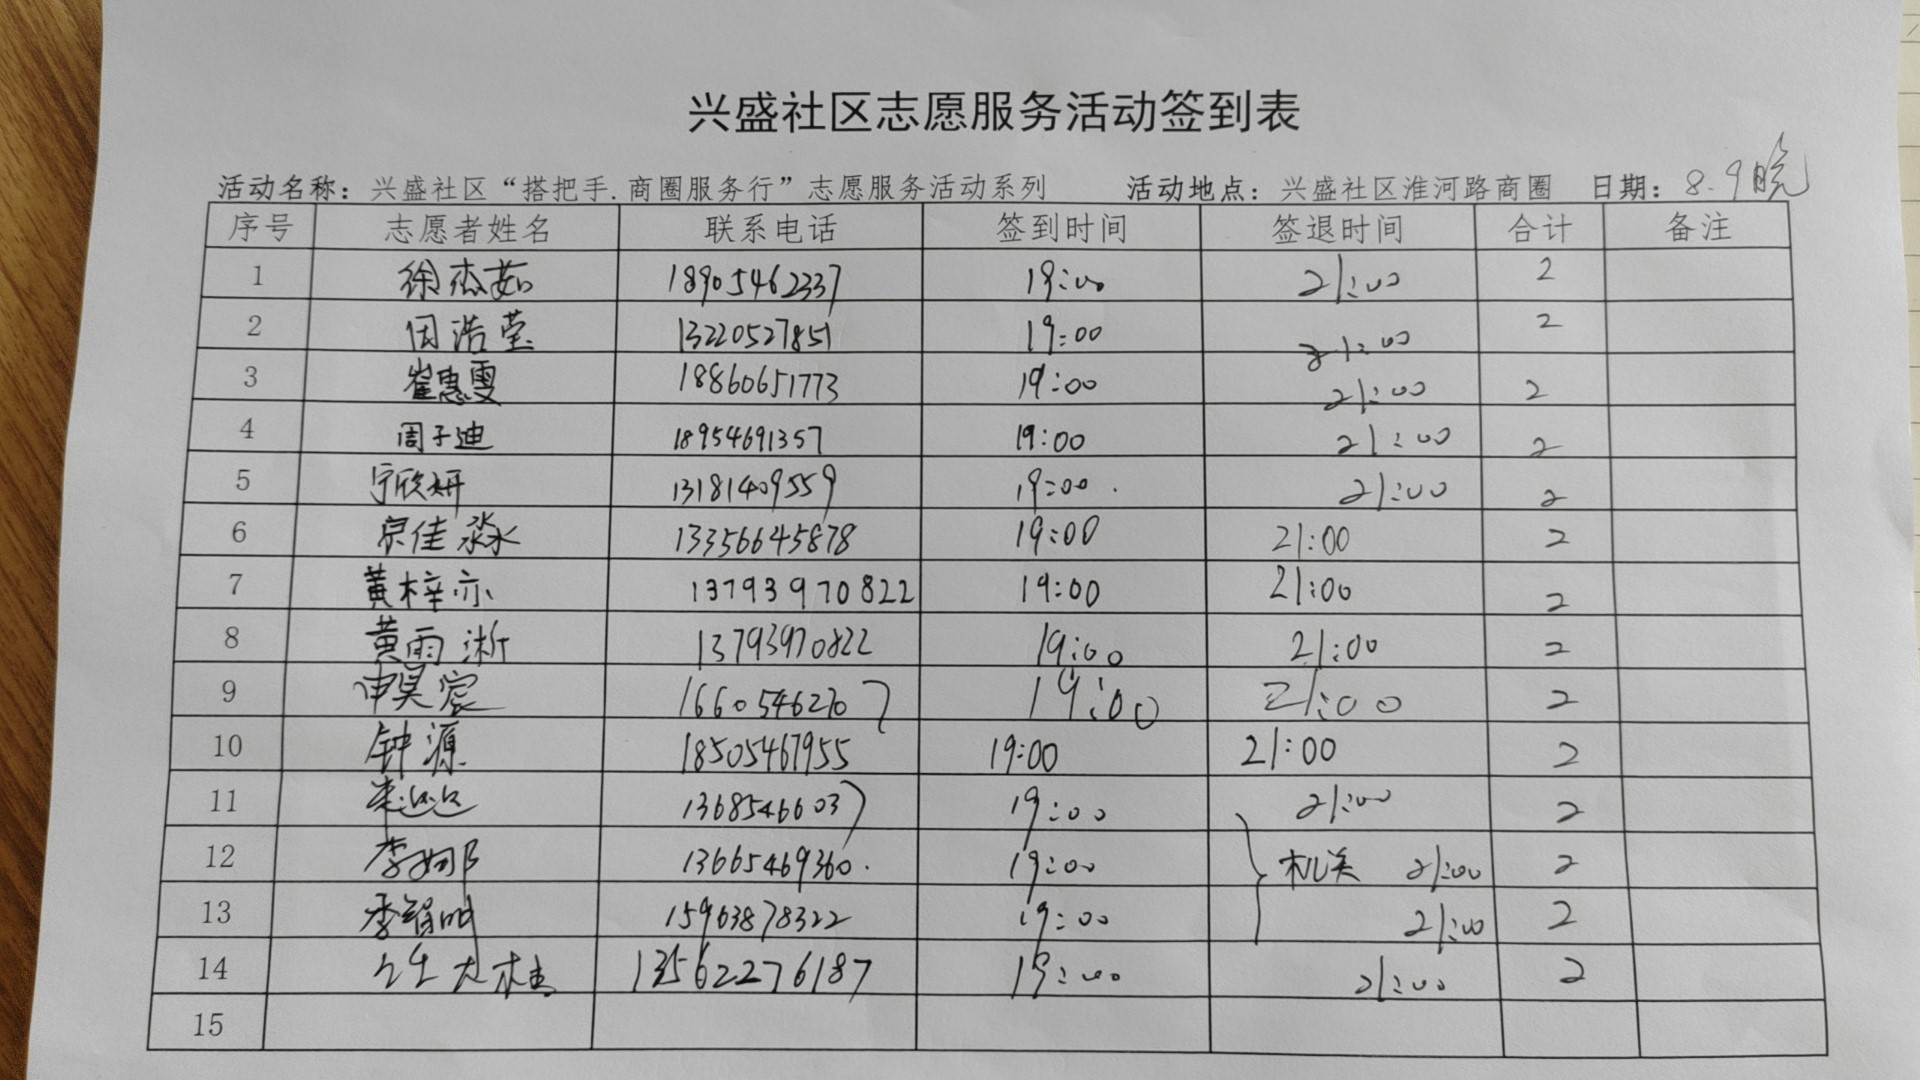 兴盛社区志愿服务活动签到表
活动名称：兴盛社区“搭把手.商圈服务行”志愿服务活动系列 活动地点：兴盛社区淮河路商圈 日期：8.9晚
序号 志愿者姓名 联系电话 签到时间 签退时间 合计 备注
1 徐杰茹 18905462337 19:00 21:00 2
2 田浩莹 13220527851 19:00 21:00 2
3 崔惠雯 18860651773 19:00 21:00 2
4 周子迪 18954691357 19:00 21:00 2
5 宁欣妍 13181409559 19:00 21:00 2
6 宗佳淼 13356645878 19:00 21:00 2
7 黄梓亦 13793970822 19:00 21:00 2
8 黄雨淅 13793970822 19:00 21:00 2
9 申昊宸 16605462707 19:00 21:00 2
10 钟源 18505467955 19:00 21:00 2
11 13685466037 19:00 21:00 2
12 李娜 13665469360 19:00 机关 21:00 2
13 李智明 15963878322 19:00 21:00 2
14 13562276187 19:00 21:00 2
15